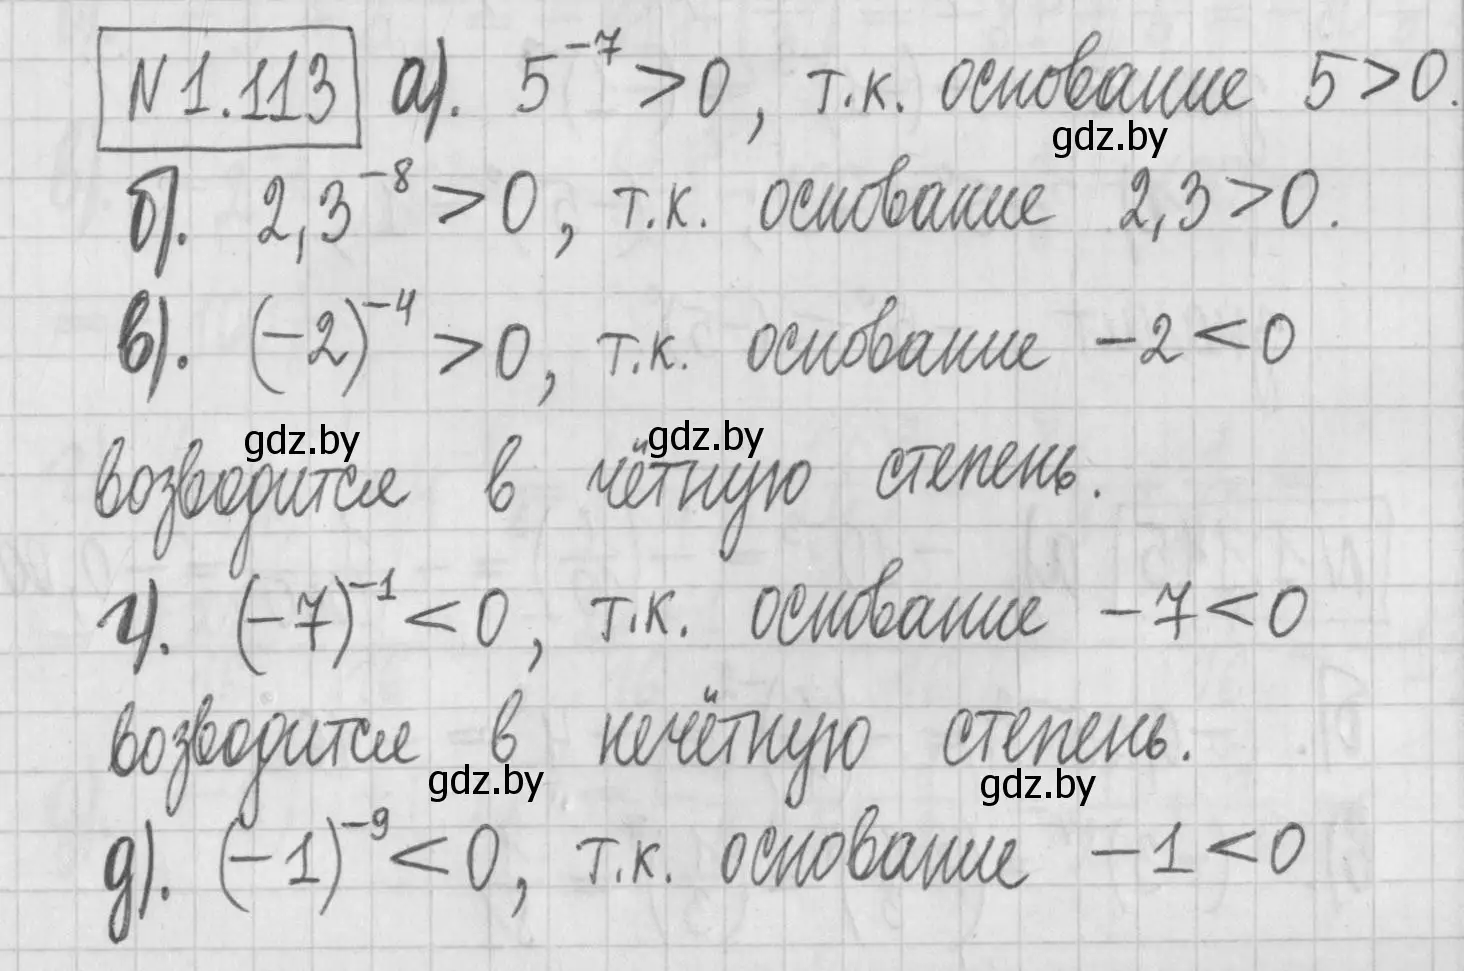 N 1.113 а). 5⁻⁷ > 0, т.к. основание 5 > 0.
gdz.by
б). 2,3⁻⁸ > 0, т.к. основание 2,3 > 0.
в). (−2)⁻⁴ > 0, т.к. основание −2 < 0
gdz.by gdz.by
возводится в чётную степень.
г). (−7)⁻¹ < 0, т.к. основание −7 < 0
возводится в нечётную степень.
gdz.by gdz.by
д). (−1)⁻⁹ < 0, т.к. основание −1 < 0